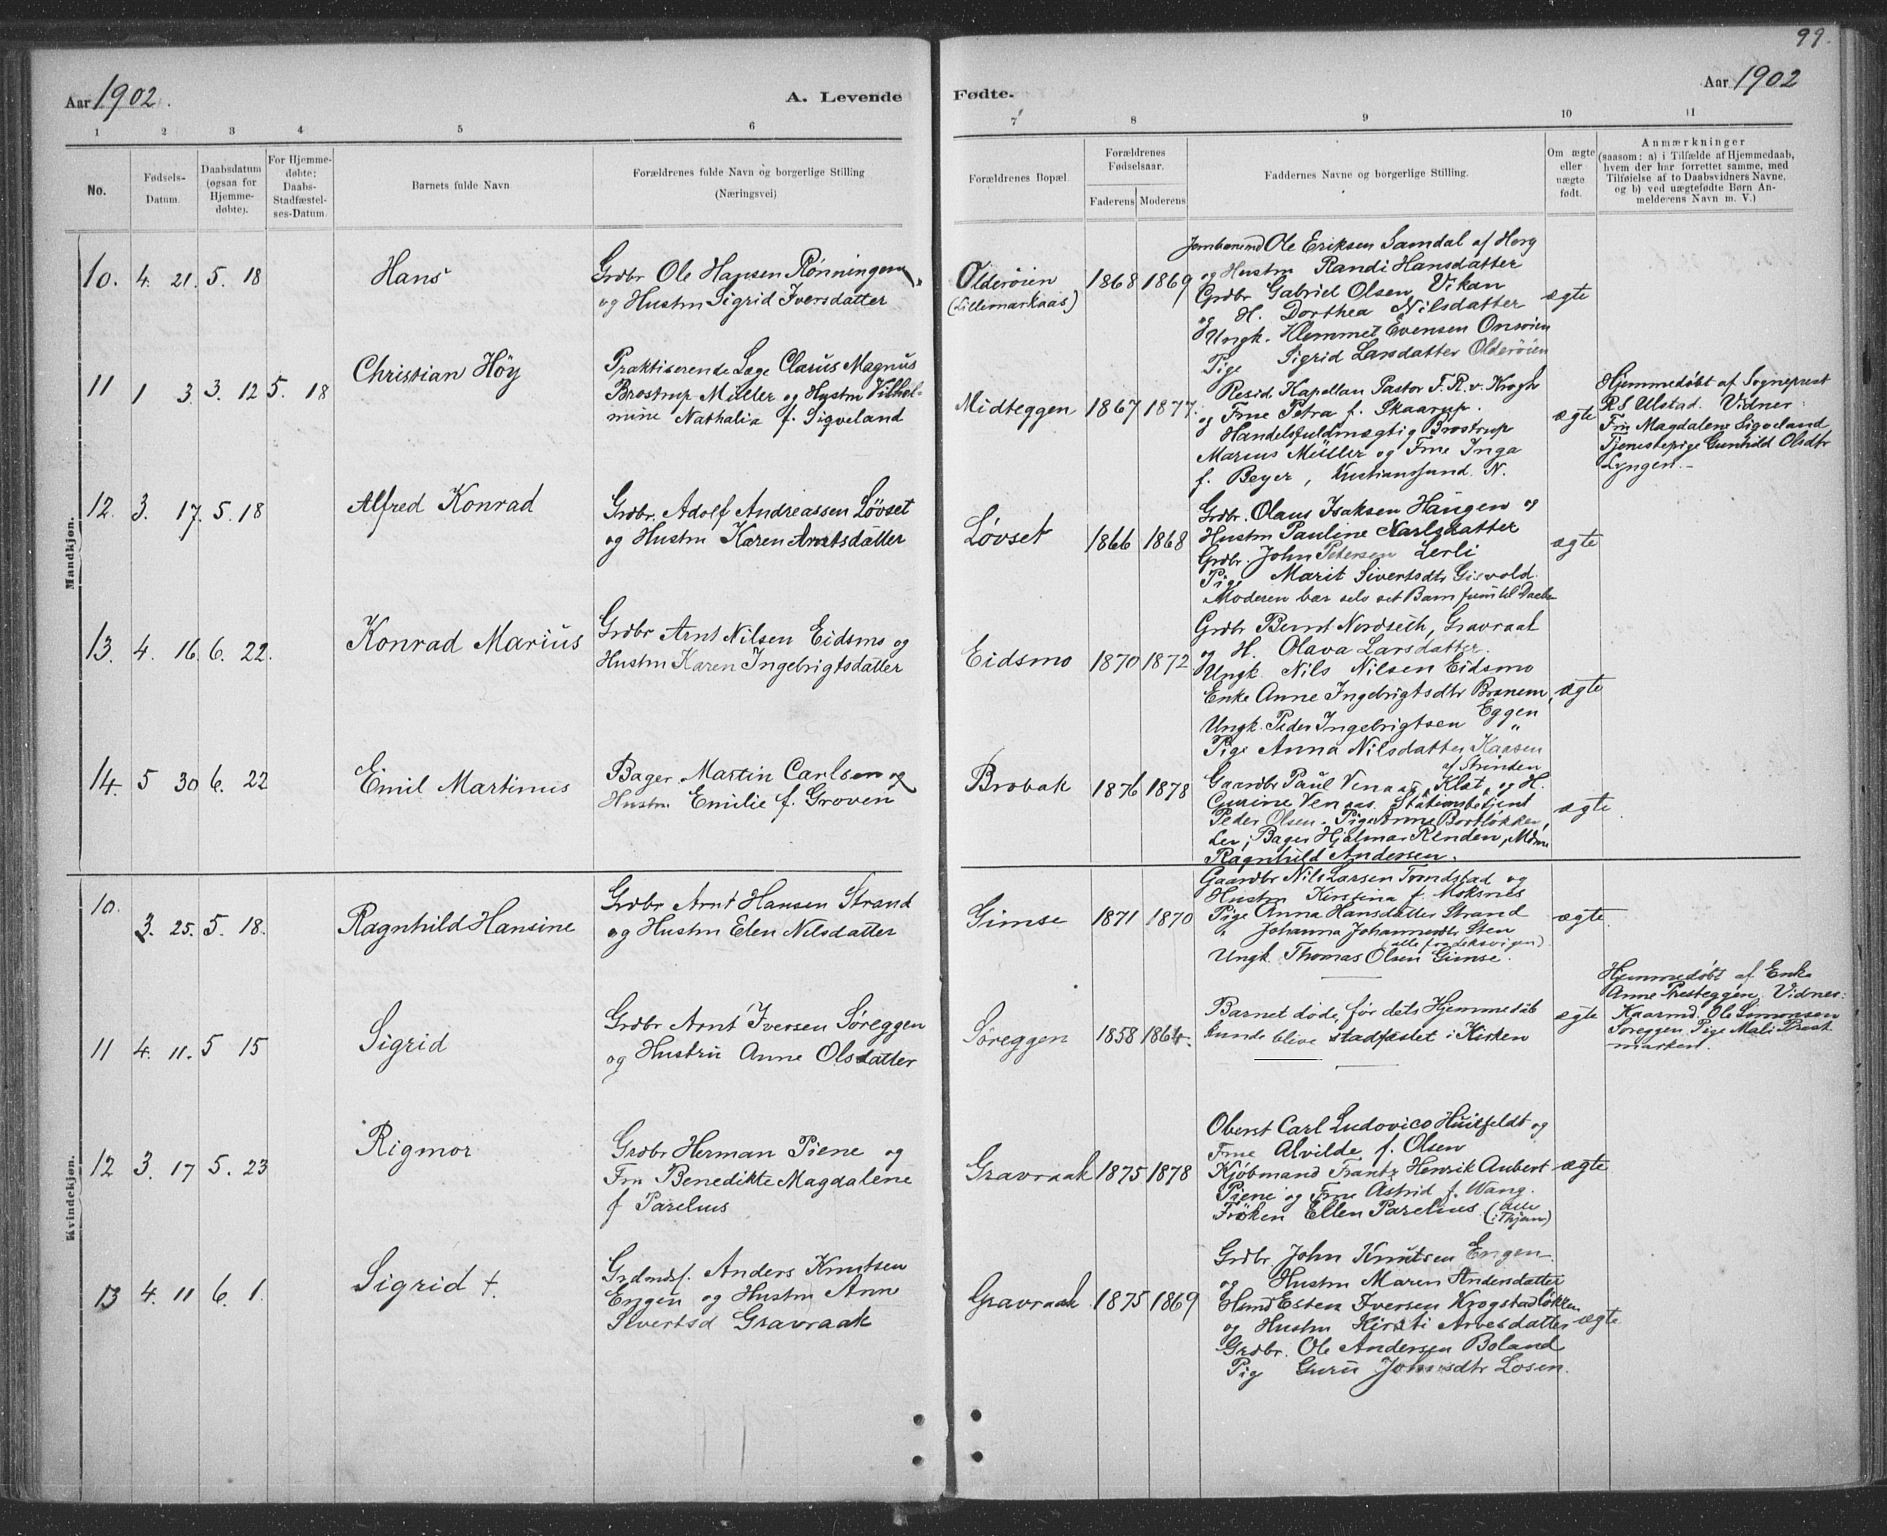 99.
Aar 1902.
A. Levende
Fødte.
Aar 1902
1 2 3 4 5 6
7 8 9 10 11
No.
Fødsels-
Datum.
Daabsdatum
(ogsaa for
Hjemme-
døbte).
For Hjemme-
døbte:
Daabs-
Stadfæstel-
ses-Datum.
Barnets fulde Navn
Forældrenes fulde Navn og borgerlige Stilling
(Næringsvei)
Forældrenes Bopæl.
Forældrenes
Fødselsaar.
Faderens Moderens
Faddernes Navne og borgerlige Stilling.
Om ægte
eller
uægte
født.
Anmærkninger
(saasom: a) i Tilfælde af Hjemmedaab,
hvem der har forrettet samme, med
Tilføielse af to Daabsvidners Navne,
og b) ved uægtefødte Børn An-
melderens Navn m. V.)
Mandkjøn.
10. 4. 21. 5. 18
Hans
Grdbr Ole Hansen Rønningen
og Hustru Sigrid Iversdatter
Olderøien
(Lillemarkaas)
1868 1869
Ole Eriksen Samdal af Horg
og Hustru Randi Hansdatter
Grdbr Gabriel Olsen Vikan
og H. Dorthea Nilsdatter
Ungk. Klemmet Evensen Onsøien
Pige Sigrid Larsdatter Olderøien
ægte
11 1 3 3. 12 5. 18
Christian Höy
Praktiserende Læge Clarus Magnus
Brostrup Müller og Hustru Vilhel-
mine Nathalia f. Sigveland
Midteggen
1867 1877.
Resid Kapellan Pastor F. R. v. Krogh
og Frue Petra f. Skaarup.
Handelsfuldmægtig Brostrup
Marius Müller og Frue Inga
f. Beyer, Kristianssund N.
ægte
Hjemmedøbt af Sogneprest
R S Ulstad. Vidner:
Fru Magdalene Sigveland
Tjenestepige Gunhild Olsdtr
Lyngen.-
12. 3. 17. 5. 18
Alfred Konrad
Grdbr. Adolf Andreassen Løvset
og Hustru Karen Arntsdatter
Løvset
1866 1868
Grdbr. Olaus Isaksen Haugen og
Hustru Pauline Karlsdatter
Grdbr. John Petersen Lerli
Pige Marit Sivertsdtr Gisvold.
Moderen bær selv sit Barn frem til Daaben
ægte
13. 4. 16. 6. 22.
Konrad Marius
Grdbr Arnt Nilsen Eidsmo og
Hustru Karen Ingebrigtsdatter
Eidsmo
1870 1872
Grdbr Bernt Nordseth, Gravraak
og H. Olava Larsdatter.
Ungk. Nils Nilsen Eidsmo
Enke Anne Ingebrigtsdtr Branem,
Ungk. Peder Ingebrigtsen Eggen
Pige Anna Nilsdatter Kaasen "
af Strinden
ægte
14. 5 30 6. 22
Emil Martinus
Bager Martin Carlsen og
Hustru Emilie f. Groven
Brobak
1876 1878
Gaardbr Paul Venaas, Klæt, og H.
Gurine Venaas. Stationsbetjent
Peder Olsen. Pige Anne Bortløkken,
Ler, Bager Hjalmar Renden,
Ragnhild Andersen.
ægte
Kvindekjøn.
10. 3. 25. 5. 18.
Ragnhild Hansine
Grdbr Arnt Hansen Strand
og Hustru Elen Nilsdatter
Gimse
1871 1870
Gaardbr Nils Larsen Trondstad og
Hustru Kirstina f. Moksnes
Pige Anna Hansdatter Strand
" Johanna Johannesdtr Sten
(alle fra
Ungk. Thomas Olsen Gimse.
ægte
11 4. 11. 5 15
Sigrid
Grdbr Arnt Iversen Søreggen
og Hustru Anne Olsdatter
Søreggen
1858 1864.
Barnet døde, før dets Hjemmedåb
kunde blive stadfæstet i Kirken
ægte
Hjemmedøbt af Enke
Anne Presteggen, Vidner:
Kaarmd. Ole Simonsen
Søreggen, Pige Mali Prest
marken.
12 3. 17 5. 23
Rigmor
Grdbr Herman Piene og
Fru Benedikte Magdalene
f Parelius
Gravraak
1875 1878
Oberst Carl Ludovico Huitfeldt og
Frue Alvilde f. Olsen
Kjøbmand Frantz Henrik Aubert
Piene og Frue Astrid f. Wang.
Frøken Ellen Parelius. (Alle
i Thjem)
ægte
13 4. 11 6. 1.
Sigrid †.
Grdmdsf. Anders Knutsen
Engen og Hustru Anne
Sivertsd Gravraak
Gravraak
1875 1869
Grdbr. John Knutsen Engen
og Hustru Maren Andersdatter
Hmd Esten Iversen Krogstadløkken
og Hustru Kirsti Arnesdatter
Grdbr. Ole Andersen Boland
Pig Guru Jonsdtr Losen.
ægte